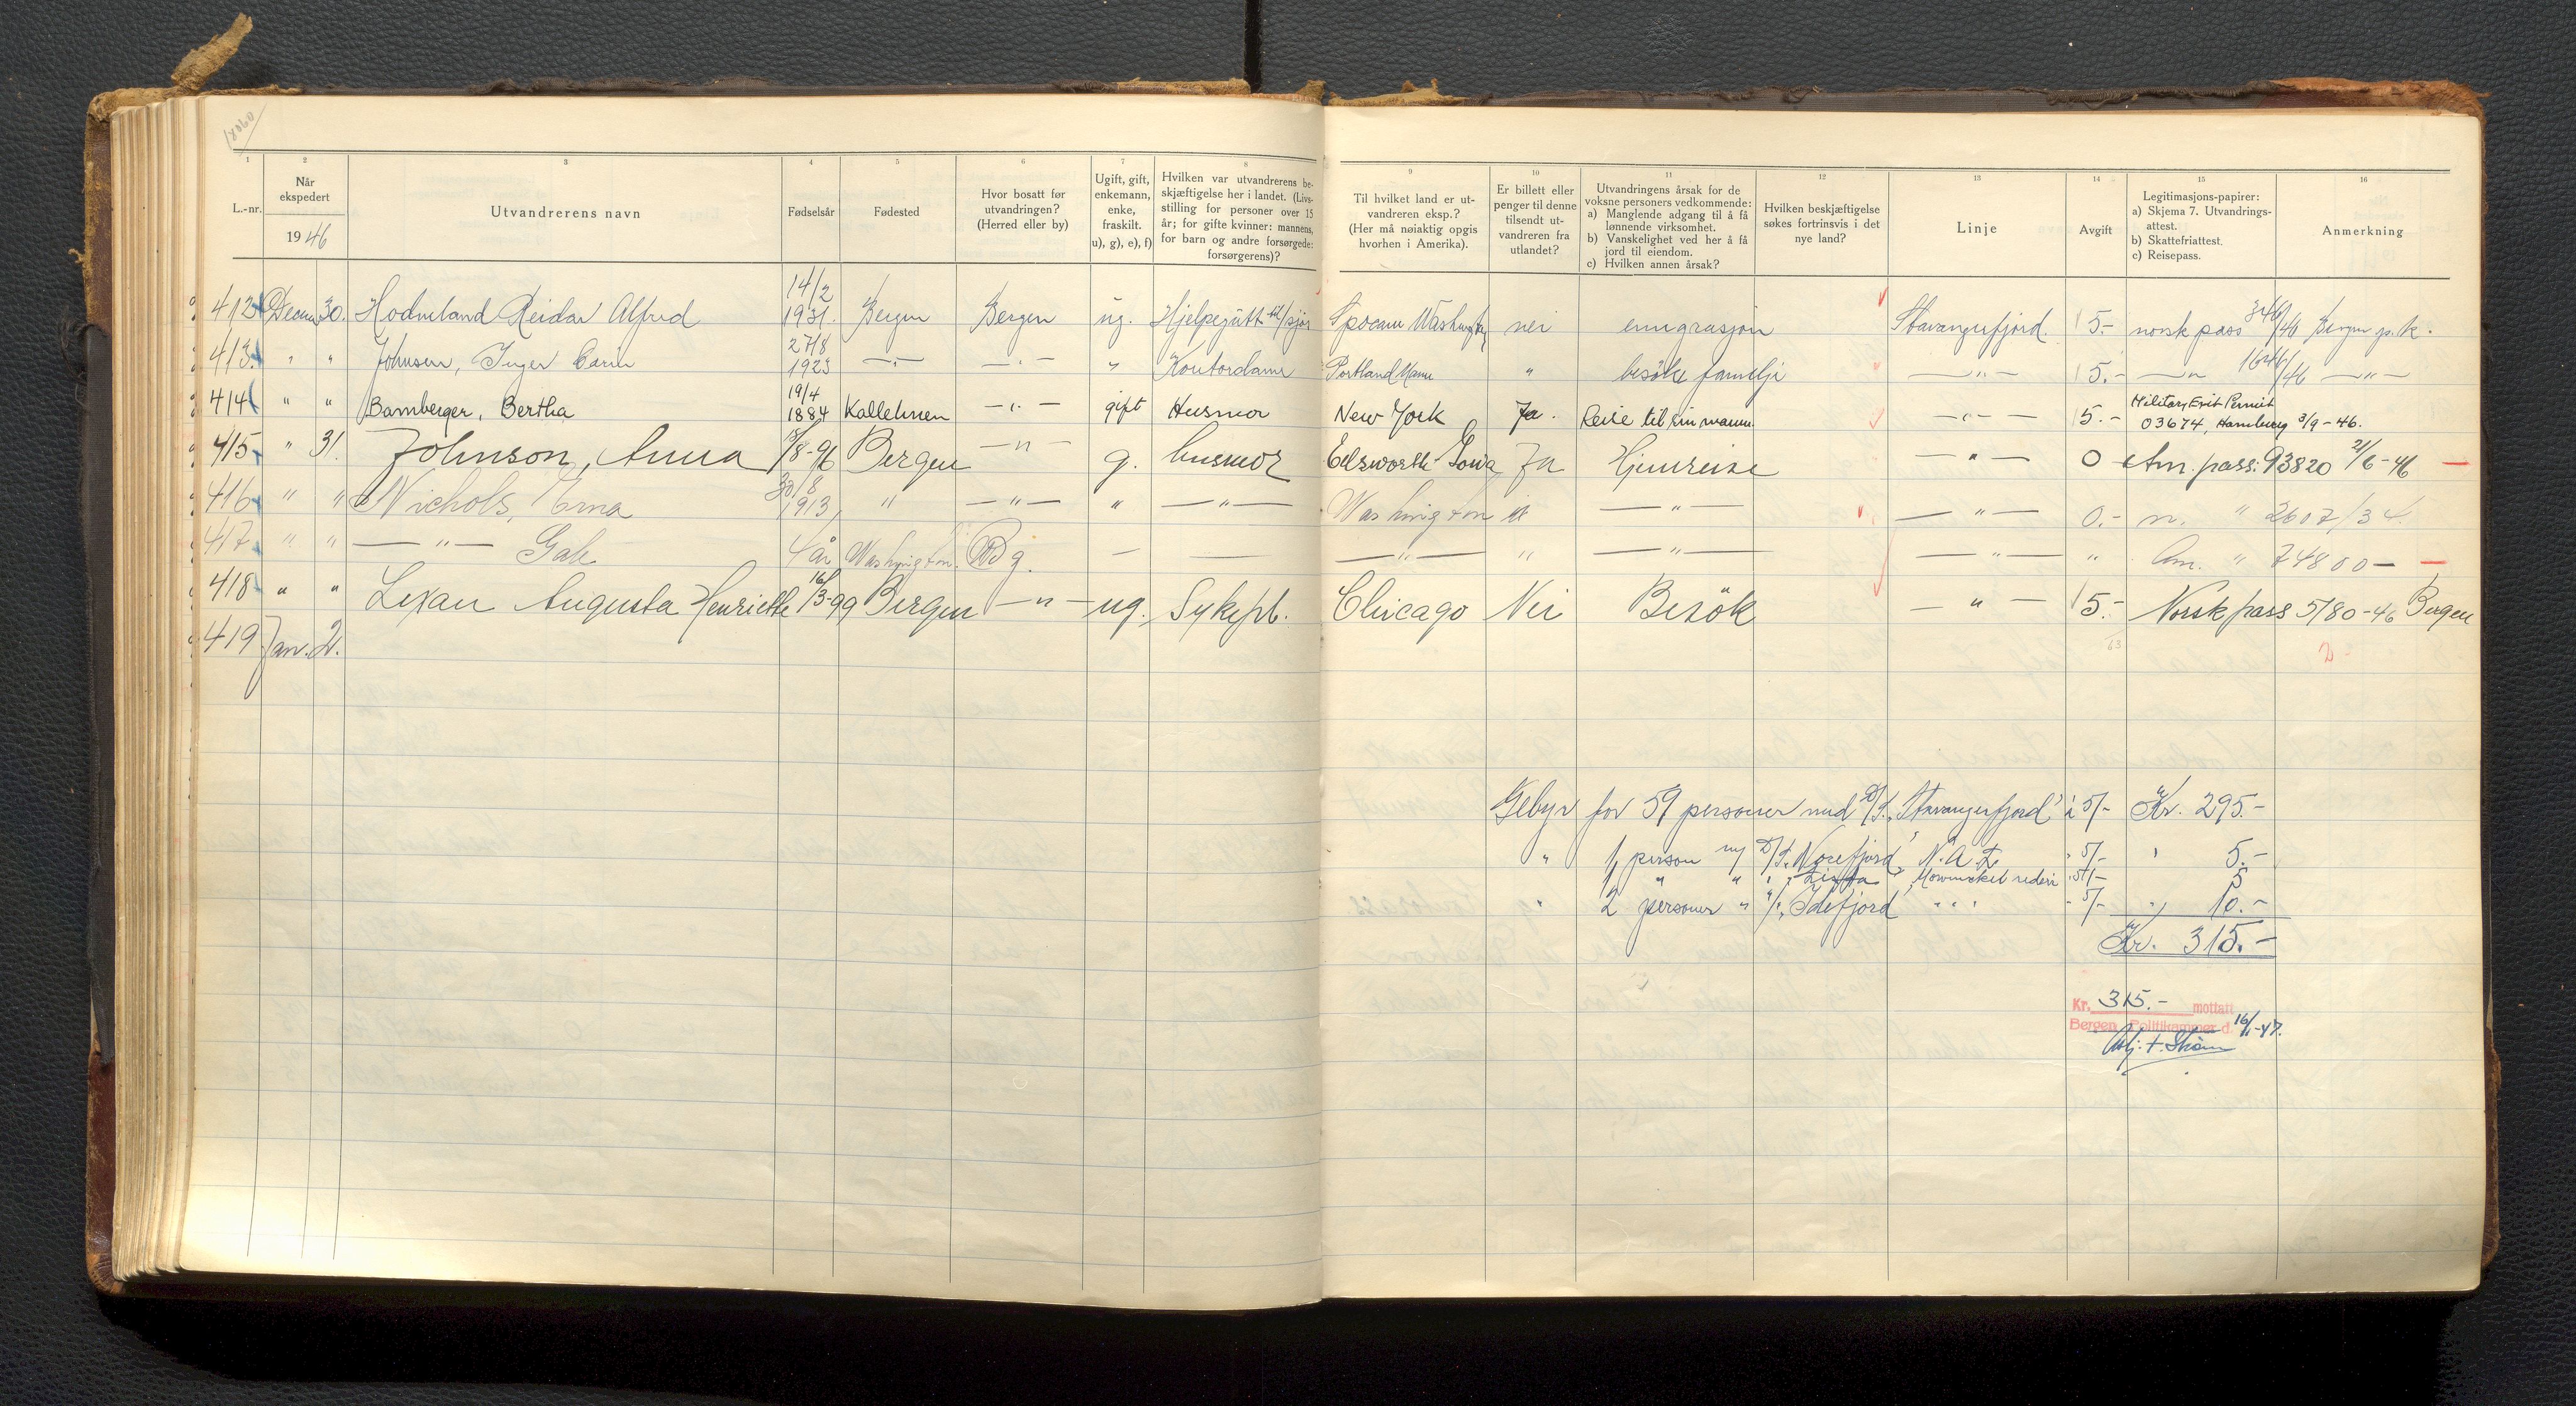 18060
1 2 3 4 5 6 7 8 9 10 11 12 13 14 15 16
L.-nr.
Når
ekspedert
1946
Utvandrerens navn
Fødselsår
Fødested
Hvor bosatt før
utvandringen?
(Herred eller by)
Ugift, gift,
enkemann,
enke,
fraskilt.
u), g), e), f)
Hvilken var utvandrerens be-
skjæftigelse her i landet. (Livs-
stilling for personer over 15
år; for gifte kvinner: mannens,
for barn og andre forsørgede:
forsørgerens)?
Til hvilket land er ut-
vandreren eksp.?
(Her må nøiaktig opgis
hvorhen i Amerika).
Er billett eller
penger til denne
tilsendt ut-
vandreren fra
utlandet?
Utvandringens årsak for de
voksne personers vedkommende:
a) Manglende adgang til å få
lønnende virksomhet.
b) Vanskelighet ved her å få
jord til eiendom.
c) Hvilken annen årsak?
Hvilken beskjæftigelse
søkes fortrinsvis i det
nye land?
Linje
Avgift
Legitimasjons-papirer:
a) Skjema 7. Utvandrings-
attest.
b) Skattefriattest.
c) Reisepass.
Anmerkning
412 Decem 30. Hodneland Reidar Alfred 14/2 1931. Bergen Bergen ug. Hjelpegutt til sjøs Spocane Washington nei emigrasjon Stavangerfjord. 5.- norsk pass 346/46 Bergen p.k.
413. " " Johnsen, Inger Carin 27/8 1923 —"— —"— " Kontordame Portland Maine " besøke familje —"— 5.- —"— 1646/46 —"—
414 " " Bamberger, Bertha 19/4 1884 Kallehnen —"— gift Husmor New York Ja. Reise til sin mann —"— 5.- Military Exit Permit 03674, Hamburg 3/9-46.
415 " 31. Johnson, Anna /8-96 Bergen —"— g. husmor Eelsworth Iowa Ja Hjemreise —"— 0 Am. pass: 93820 21/6-46 —
416 " " Nichols, Erna 30/8 1913 " —"— " —"— Washington " —"— —"— 0.- n. " 2607/34.
417. " " —"— Gale 4 år Washington Bg. — — —"— " —"— —"— " Am. " 74800 — —
418 " " Lexau Augusta Henriette 16/3-99 Bergen —"— ug. Sykepl. Chicago Nei Besøk —"— 5.- Norsk pass 5180-46 Bergen
419 Jan. 2.
63
Gebyr for 59 personer med D/S. "Stavangerfjord" à 5/- Kr. 295.-
" 1 person m/ D/S. "Norefjord" N.A.L. " 5/- " 5.-
1 " " " "Lista" Mowinckel rederi " 5/- 5
" 2 personer " "/" "Idefjord" " " " " 5/- " 10.-
Kr. 315.-
Kr. 315.- mottatt
Bergen Politikammer d. 16/1-47.